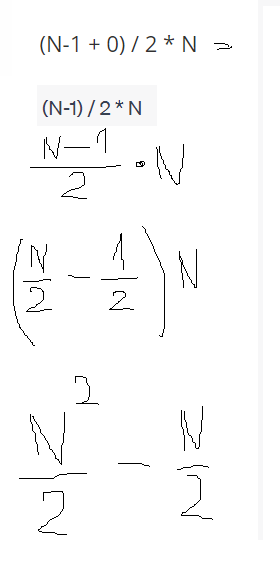 (N-1 + 0) / 2 * N =
(N-1) / 2 * N
N-1/2 · N
(N/2 - 1/2) N
N²/2 - N/2